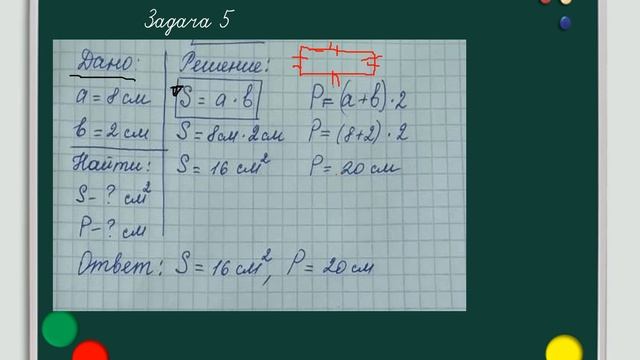 Задача 5
Дано:
a = 8 см
в = 2 см
Найти:
S - ? см²
P - ? см
Решение:
S = a · в
S = 8 см · 2 см
S = 16 см²
P = (a + в) · 2
P = (8 + 2) · 2
P = 20 см
Ответ: S = 16 см², P = 20 см